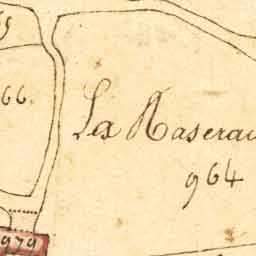 66.
La Raserau
964
979